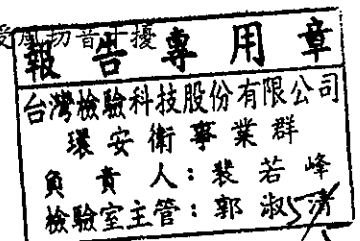 受風切音干擾
報告專用章
台灣檢驗科技股份有限公司
環安衛事業群
負責人：裴若峰
檢驗室主管：郭淑清